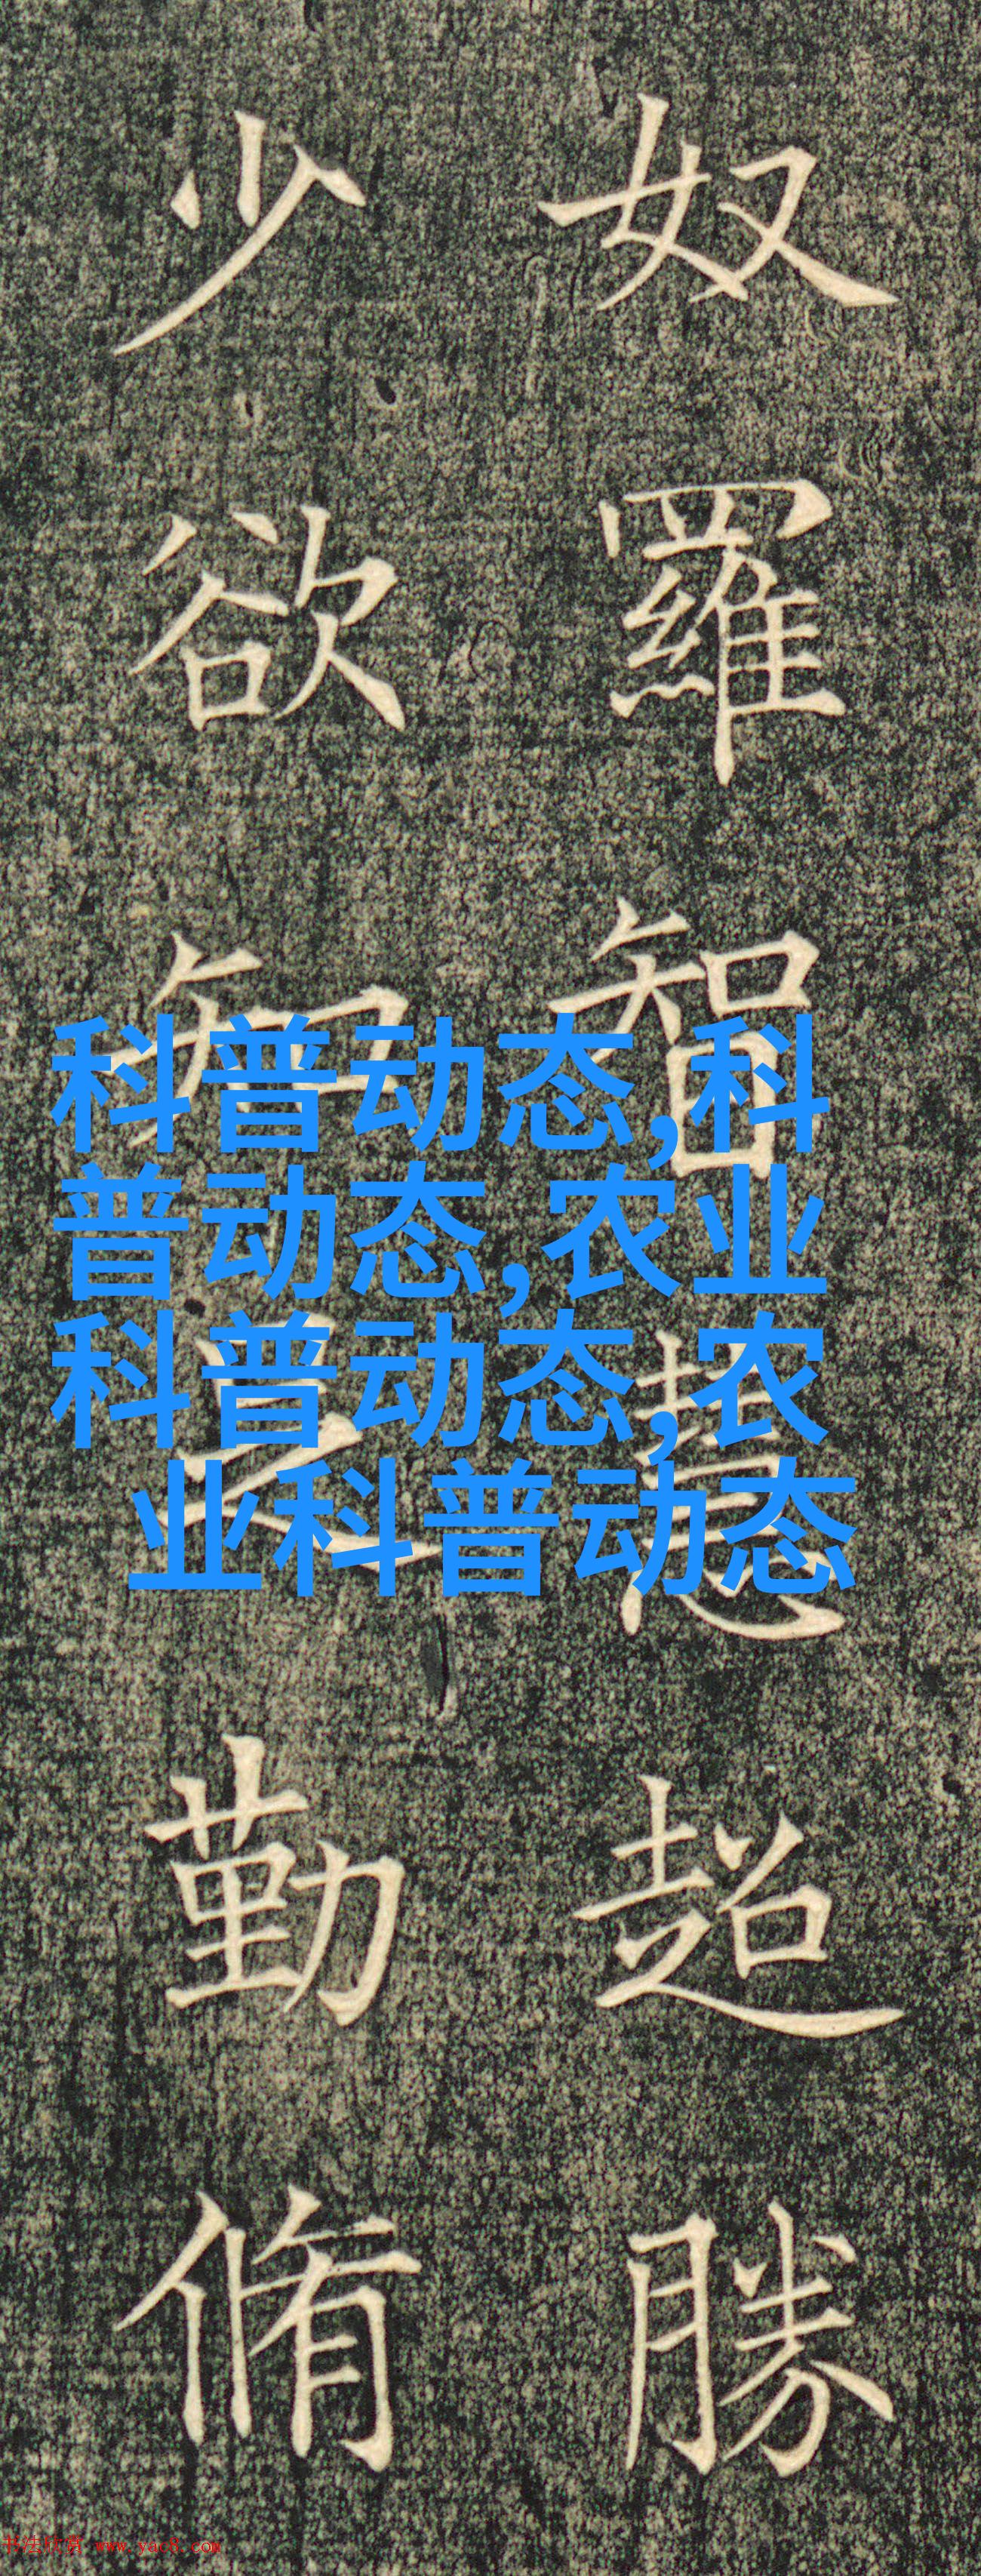 奴羅智慧超勝
少欲知足勤脩
科普动态,科
普动态,农业
科普动态,农
业科普动态
书法欣赏 www.yac8.com